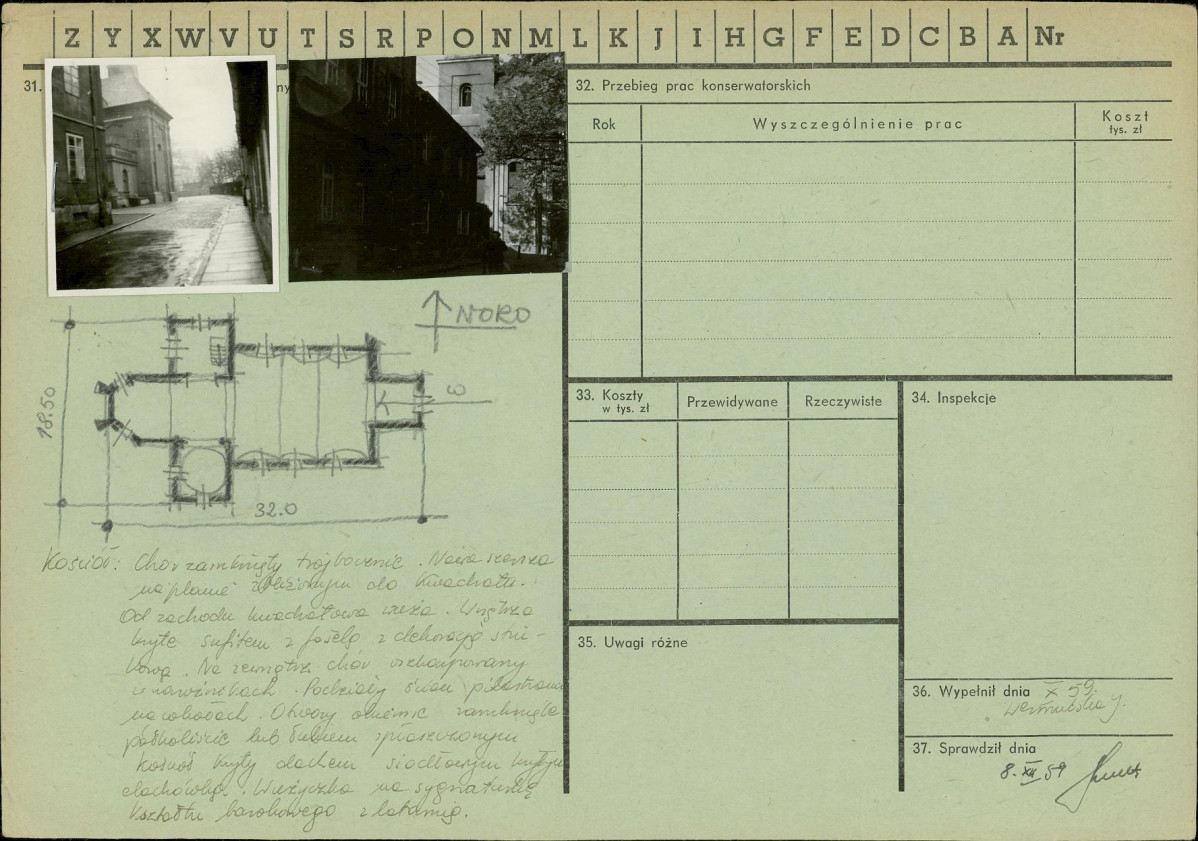 Z Y X W V U T S R P O N M L K J I H G F E D C B A Nr
31.
ny
NORD
W
18.50
32.0
Kościół: Chór zamknięty trójbocznie. Nawa szersza
na planie zbliżonym do kwadratu.
Od zachodu kwadratowa wieża. Wnętrza
kryte sufitem z fasetą z dekoracją stiu-
kową. Na zewnątrz chór
w narożnikach. Podziały ścian pilastrami
na cokołach. Otwory okienne zamknięte
półkoliście lub łukiem spłaszczonym
Kościół kryty dachem siodłowym krytym
dachówką. Wieżyczka na sygnaturkę
kształtu barokowego z latarnią.
32. Przebieg prac konserwatorskich
Rok
Wyszczególnienie prac
Koszt
tys. zł
33. Koszty
w tys. zł
Przewidywane
Rzeczywiste
34. Inspekcje
35. Uwagi różne
36. Wypełnił dnia X 59.
37. Sprawdził dnia
8. XII 59